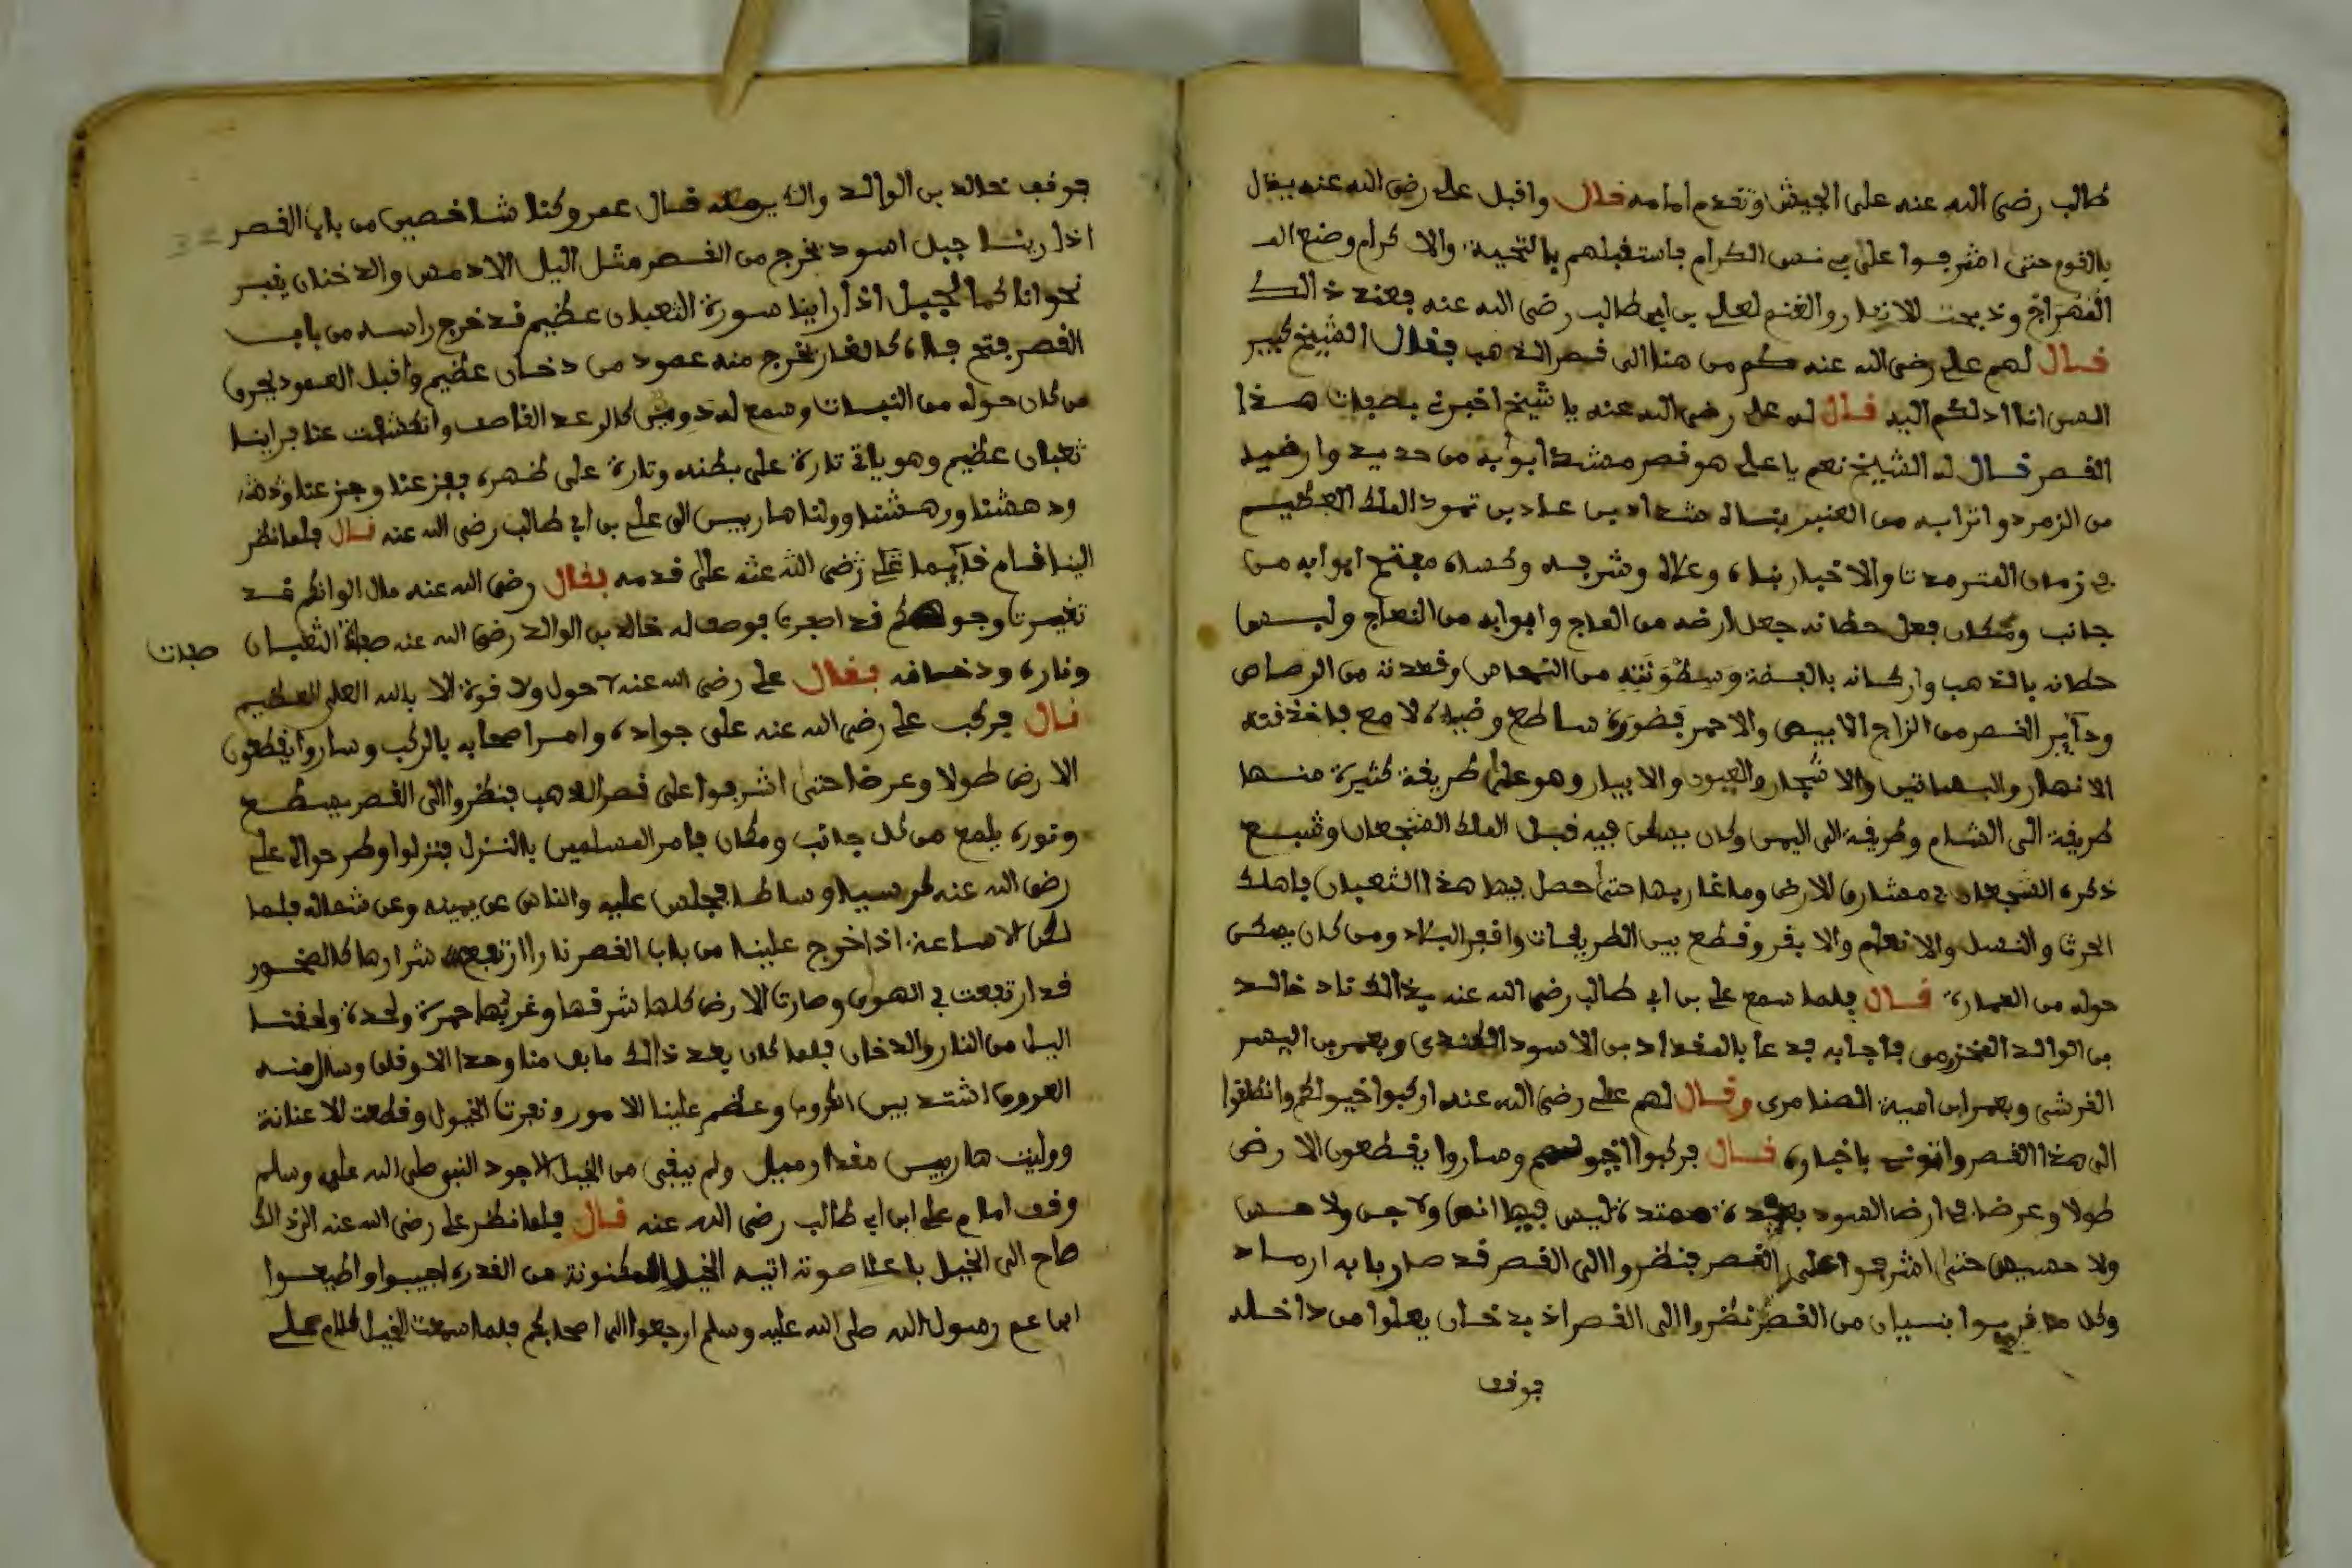 طالب رضي الله عنه على الجيش وتقدم امامه فال وافبل علي رضي الله عنه بفال
بالقوم حتى اشرفوا على بي عبس الكرام باستقبلهم بالتحية والاكرام وضع
وذبحت الانعام والغنم لعلي بن ابي طالب رضي الله عنه فعند ذالك
فال لهم علي رضي الله عنه كم من هنا الى فصر الذهب ففال الشيخ
انا ادلكم اليه فال له علي رضي الله عنه يا شيخ اخبرني بصفات هذا
الفصر فال له الشيخ نعم يا علي هو فصر مشد ابوابه من حديد وارضه
من الزمرد واترابه من العنبر بناه شداد بن عاد بن ثمود الملك العظيم
في زمان والاخبار بناه وعلاه وشرفه وكساه مفتح ابوابه من
جانب ومكان فعل حطانه جعل ارضه من العاج وابوابه من النعاج ولبس
حطانه بالذهب واركانه بالفضة من النحاس وفعدته من الرصاص
الفصر من الزاج الابيض والاحمر ساطع وضياه لامع
الانهار والبساتين والاشجار والعيون والابيار وهو على طريفة كثيرة منها
طريفة الى الشام وطريفة الى اليمن وكان يسكن فيه فبل الملك الشجعان وشيع
ذكره الشجعان في مشارق الارض ومغاربها حتى حصل فيها هذا الثعبان باهلك
الحرث والنسل والانعام والابقر وفطع بين الطريفات وافعر البلاد ومن كان يسكن
حوله من العمارة فال فلما سمع علي بن ابي طالب رضي الله عنه بذالك ناد خالد
بن الوالد المخزومي فاجابه فدعا بالمقداد بن الاسود الكندي وبعمر بن اليسر
الفرشي وبعمر ابن امية الضامري وفال لهم علي رضي الله عنه اركبوا خيولكم وانطلقوا
الى هذا الفصر واتوني باخباره فال فركبوا اخيولهم وساروا يقطعون الارض
طولا وعرضا في ارض السود ممتدة ليس فيها انس ولا جن ولا حس
ولا حسيس حتى اشرفوا على الفصر فنظروا الى الفصر فد صار بابه ارماد
وكل ما فربوا من الفصر نظروا الى الفصر اذ بدخان يعلوا من داخله
فوفف
فوفف خالد بن الوالد فال عمر وكنا شاخصين من باب الفصر
اذ راينا جبل اسود يخرج من الفصر مثل اليل الادمس والدخان يفبر
نحوانا كما الجبل اذ راينا سورة الثعبان عظيم فد خرج راسه من باب
الفصر فتح فاه كالغار يخرج منه عمود من دخان عظيم وافبل العمود يحرف
من كان حوله من النبات وسمع له دوي كالرعد الفاصف وانكشفت عنا فراينا
ثعبان عظيم وهو ياتي تارة على بطنه وتارة على ظهره ففزعنا وجزعنا
ودهشنا ورهشنا وولنا هاربين الى علي بن ابي طالب رضي الله عنه فال فلما نظر
الينا فام فايما علي رضي الله عنه على فدمه بفال رضي الله عنه مال الوانكم فد
تغيرت وجوهكم فد اصفرت فوصف له خالد بن الوالد رضي الله عنه صفة الثعبان
صفات
وناره ودخانه بفال علي رضي الله عنه لا حول ولا فوة الا بالله العلي العظيم
فال فركب علي رضي الله عنه على جواده وامر اصحابه بالركب وساروا يفطعون
الارض طولا وعرضا حتى اشرفوا على فصر الذهب فنظروا الى الفصر يسطع
ونوره يلمع من كل جانب ومكان فامر المسلمين بالنزل فنزلوا وطرحوا الى علي
رضي الله عنه كرسيا وساطا فجلس عليه والناس عن يمينه وعن شماله فلما
لكن الا ساعة اذ اخرج علينا من باب الفصر نارا ارتفع شرارها كالصخور
فد ارتفعت في الهوى وصارت الارض كلها شرفها وغربها جمرة واحدة ولحفنا
اليل من النار والدخان فلما كان بعد ذالك ما بفى منا وحدا الا وفلق وسال منه
العروق اشتد بين الكروب وعظم علينا الامور ونفرت الخيول وفطعت الاعنانة
ووليت هاربين مفدار وميل ولم يبفى من الخيل الا جود النبي صلى الله عليه وسلم
وفف امام علي ابن ابي طالب رضي الله عنه فال فلما نظر علي رضي الله عنه الى ذالك
صاح الى الخيل باعلا صوته ايته الخيل المكنونة من الفدره اجيبوا واطيعوا
ابن عم رسول الله صلى الله عليه وسلم ارجعوا الى اصحابكم فلما سمعت الخيل كلام علي